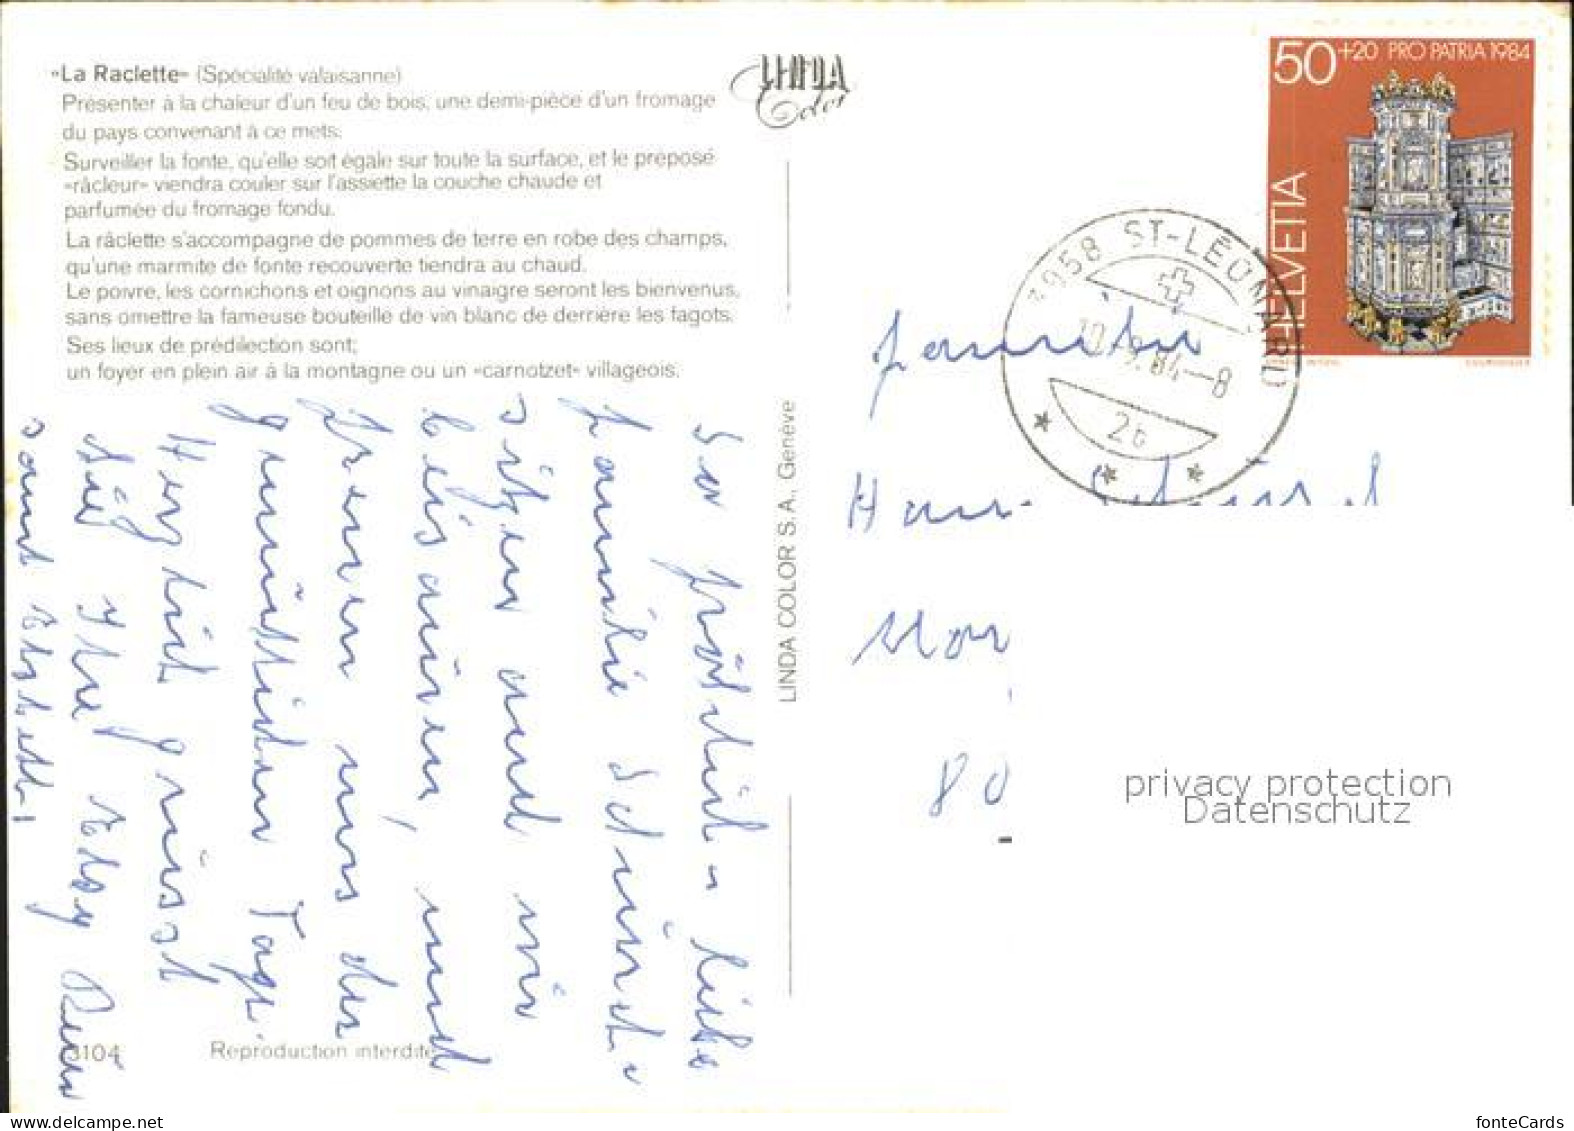 «La Raclette» (Spécialité valaisanne)
Présenter à la chaleur d'un feu de bois, une demi-pièce d'un fromage
du pays convenant à ce mets.
Surveiller la fonte, qu'elle soit égale sur toute la surface, et le préposé
«râcleur» viendra couler sur l'assiette la couche chaude et
parfumée du fromage fondu.
La râclette s'accompagne de pommes de terre en robe des champs,
qu'une marmite de fonte recouverte tiendra au chaud.
Le poivre, les cornichons et oignons au vinaigre seront les bienvenus,
sans omettre la fameuse bouteille de vin blanc de derrière les fagots.
Ses lieux de prédilection sont:
un foyer en plein air à la montagne ou un «carnotzet» villageois.
LINDA
Color
LINDA COLOR S.A., Genève
50+20 PRO PATRIA 1984
HELVETIA
3958 ST-LEONARD
84-8
2b
Familie
Hans
80
So fröhlich
Familie
sitzen und wir
beisamen, und
freuen uns der
gemütlichen Tage.
Herzlich grüsst
Sie Ihre
samt
3104
Reproduction interdite
privacy protection
Datenschutz
www.delcampe.net
fonteCards